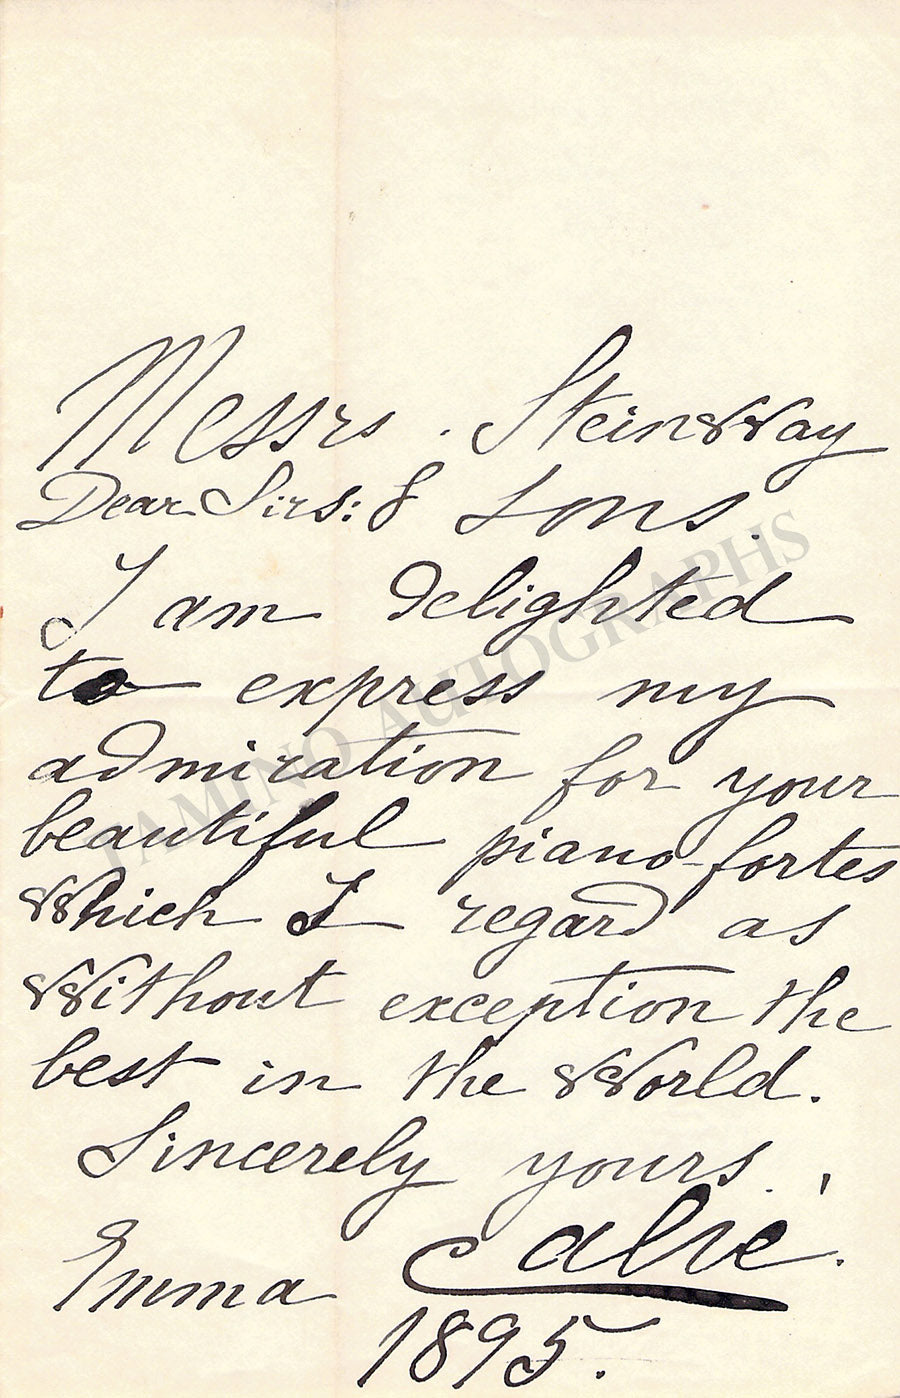 Messrs. Steinway
Dear Sirs: & Sons.
I am delighted
to express my
admiration for your
beautiful piano-fortes
which I regard as
without exception the
best in the world.
Sincerely yours
Emma Calvé.
1895.
TAMINO AUTOGRAPHS